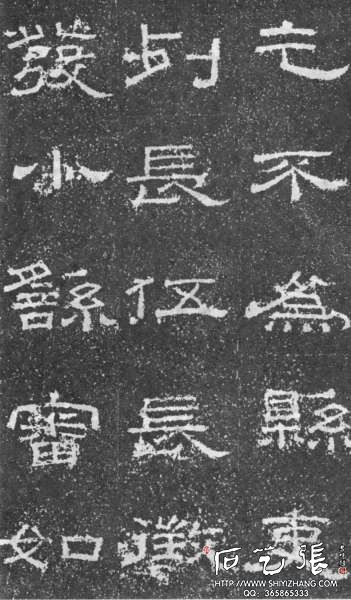 亡不為縣吏
列長伍長徵
發小繇審如
石艺張
HTTP://WWW.SHIYIZHANG.COM
QQ: 365865333